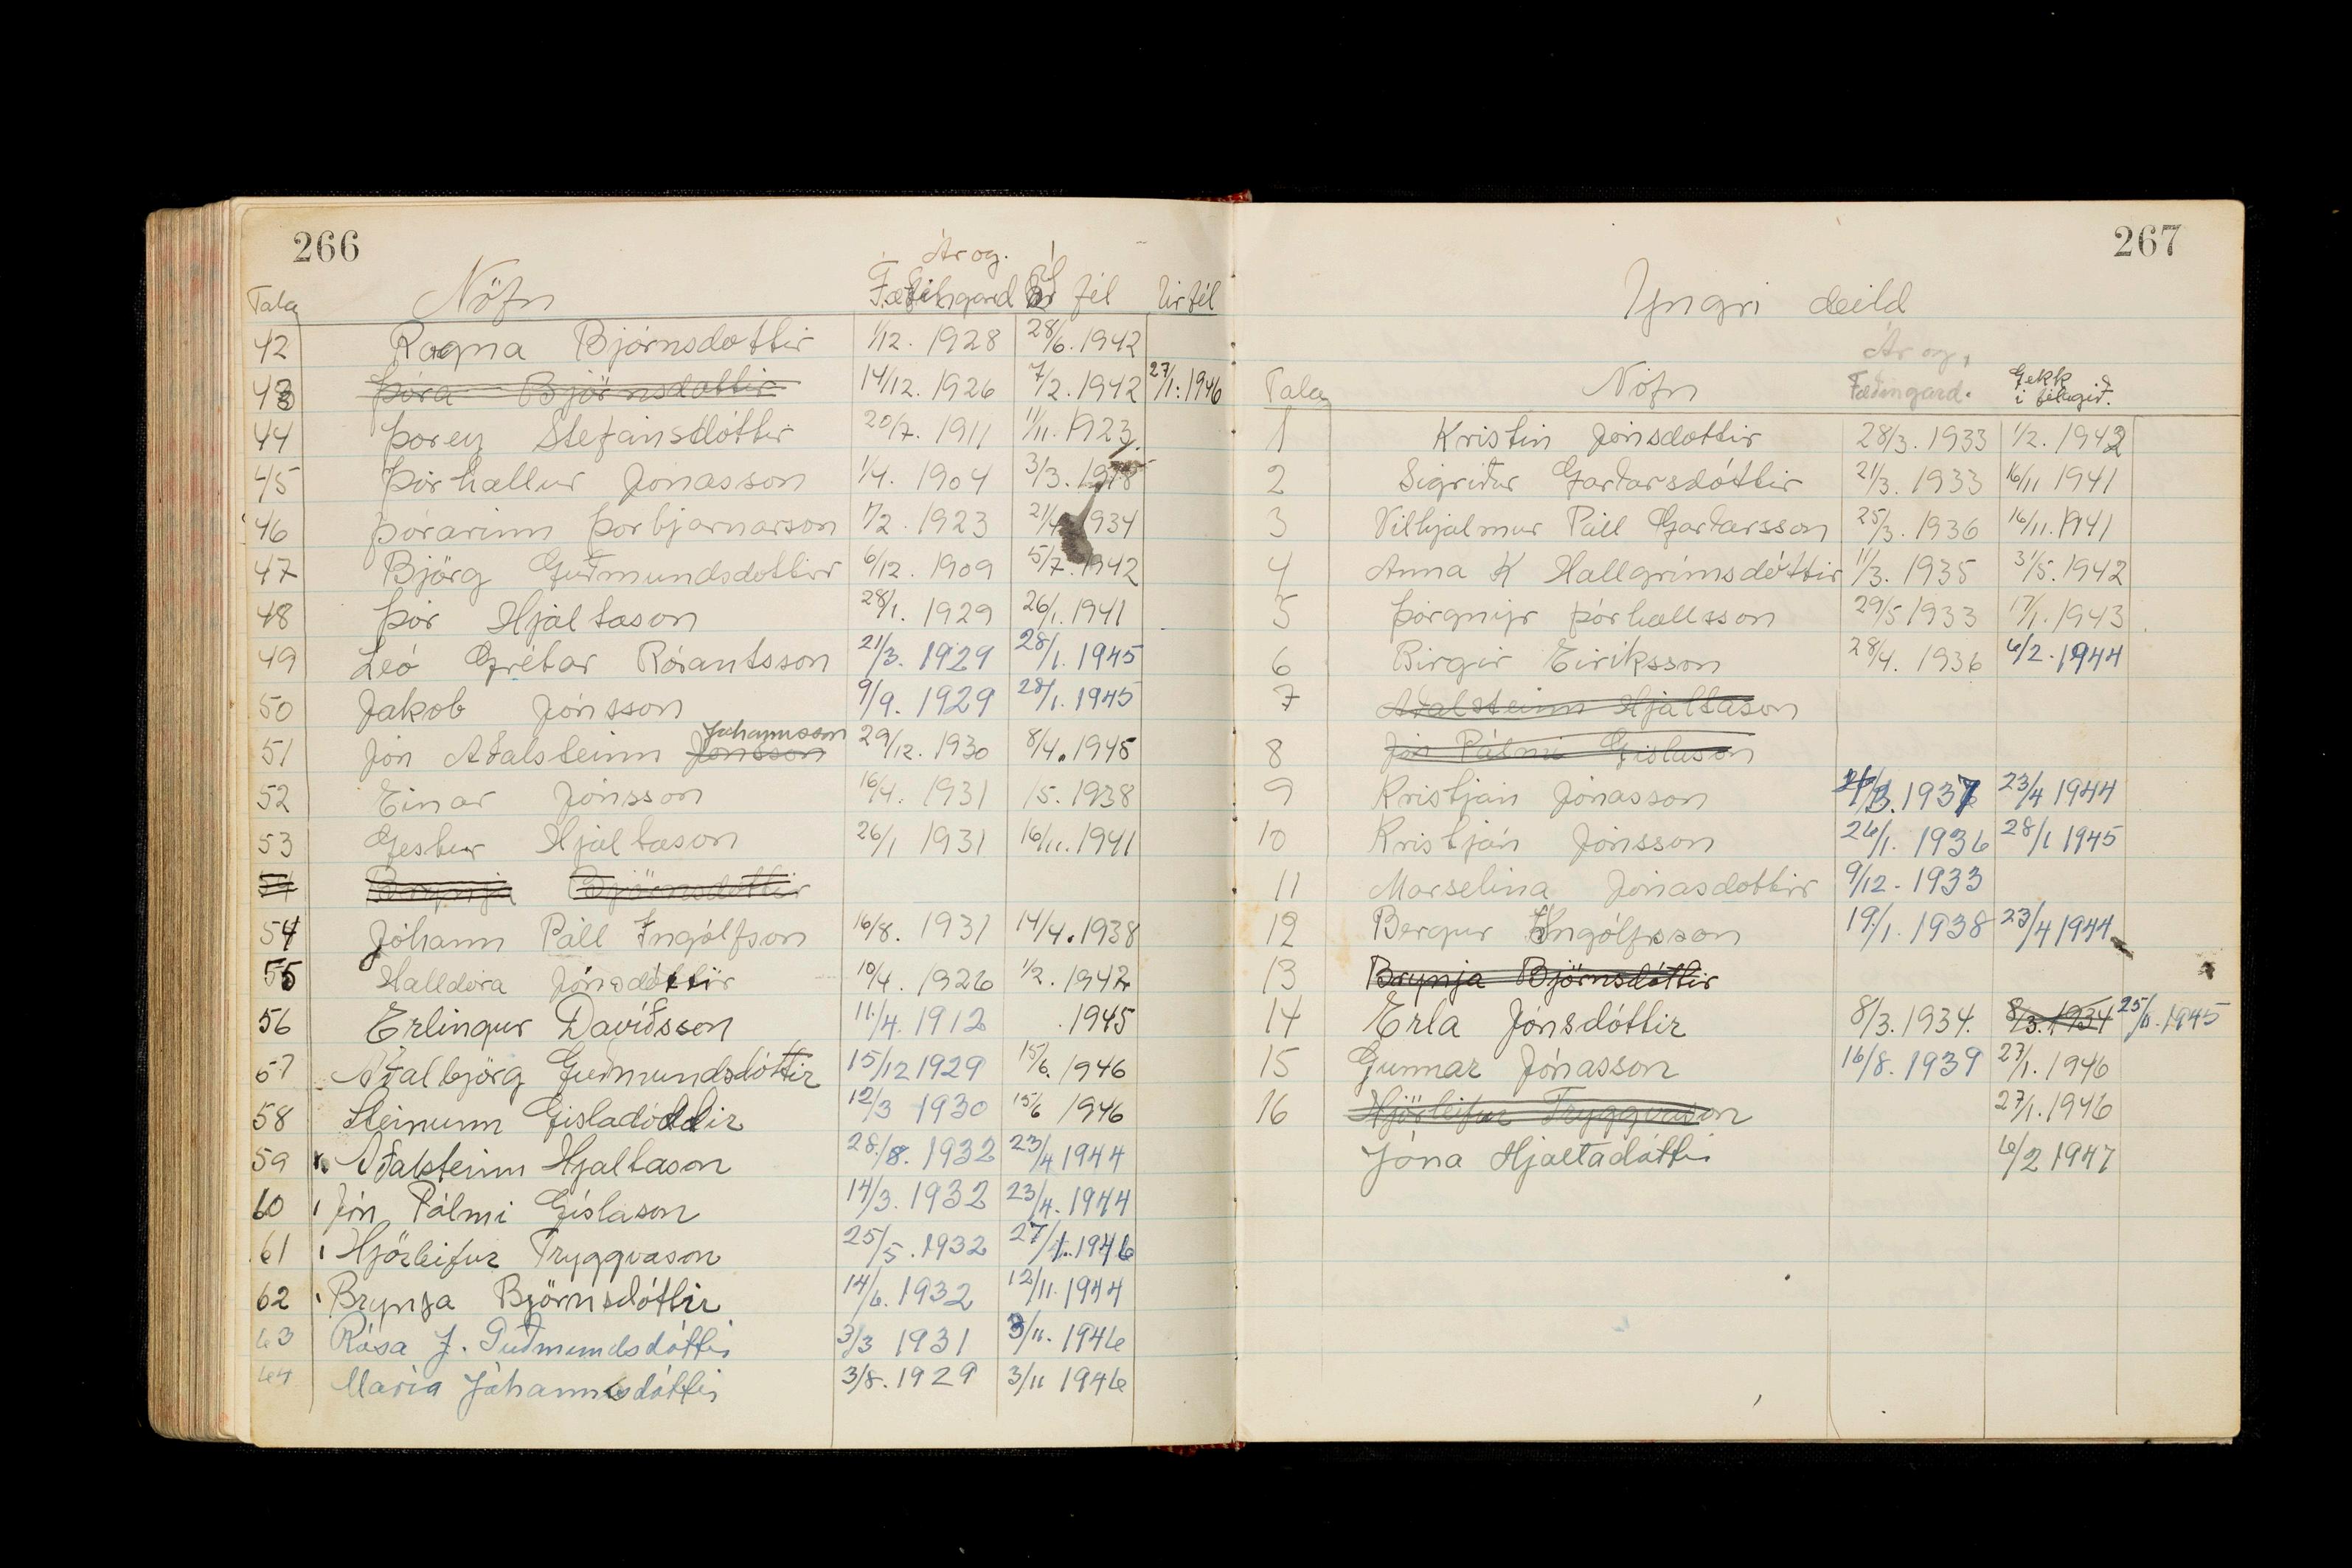 266
Ár og
Tala Nöfn Fæðingard Í fél Úr fél
42 Ragna Björnsdottir 1/12. 1928 28/6. 1942
43 Þóra Björnsdottir 14/12. 1926 7/2. 1942 27/1. 1946
44 Þorey Stefánsdóttir 20/7. 1911 1/11. 1923
45 Þórhallur Jónasson 1/4. 1904 3/3. 1918
46 Þórarinn Þorbjarnarson 1/2. 1923 1934
47 Björg Guðmundsdottir 6/12. 1909 5/7. 1942
48 Þór Hjaltason 28/1. 1929 26/1. 1941
49 Leó Grétar Rórantsson 21/3. 1929 28/1. 1945
50 Jakob Jónsson 9/9. 1929 28/1. 1945
Jóhannsson
51 Jón Aðalsteinn Jónsson 29/12. 1930 8/4. 1945
52 Einar Jónsson 16/4. 1931 /5. 1938
53 Gestur Hjaltason 26/1 1931 16/11. 1941
54 Brynja Björnsdóttir
54 Jóhann Páll Ingólfson 16/8. 1931 14/4. 1938
55 Halldóra Jónsdóttir 10/4. 1926 1/2. 1942
56 Erlingur Davíðsson 11/4. 1912 . 1945
57 Aðalbjörg Guðmundsdóttir 15/12 1929 15/6. 1946
58 Steinunn Gísladóttir 12/3 1930 15/6 1946
59 Aðalsteinn Hjaltason 28./8. 1932 23/4 1944
60 Jón Pálmi Gíslason 14/3. 1932 23/4. 1944
61 Hjörleifur Tryggvason 25/5. 1932 27/1. 1946
62 Brynja Björnsdóttir 14/6. 1932 12/11. 1944
63 Rósa J. Guðmundsdóttir 3/3 1931 3/11. 1946
64 María Jóhannsdóttir 3/8. 1929 3/11 1946
267
Yngri deild
Ár og
Tala Nöfn Fæðingard. Gekk í félagið.
1 Kristín Jónsdottir 28/3. 1933 1/2. 1942
2 Sigríður Garðarsdóttir 21/3. 1933 16/11 1941
3 Vilhjalmur Páll Garðarsson 25/3. 1936 16/11. 1941
4 Anna K Hallgrímsdóttir 11/3. 1935 31/5. 1942
5 Þórgnýr Þórhallsson 29/5 1933 17/1. 1943
6 Birgir Eiríksson 28/4. 1936 6/2. 1944
7 Aðalsteinn Hjaltason
8 Jón Pálmi Gíslason
9 Kristján Jónasson /3. 1937 23/4 1944
10 Kristján Jónsson 26/1. 1936 28/1 1945
11 Marselína Jónasdottir 9/12. 1933
12 Bergur Ingólfsson 19./1. 1938 23/4 1944
13 Brynja Björnsdóttir
14 Erla Jónsdóttir 8/3. 1934. 8/3. 1934 25/11. 1945
15 Gunnar Jónasson 16/8. 1939 27/1. 1946
16 Hjörleifur Tryggvason 27/1. 1946
Jóna Hjaltadóttir 6/2 1947